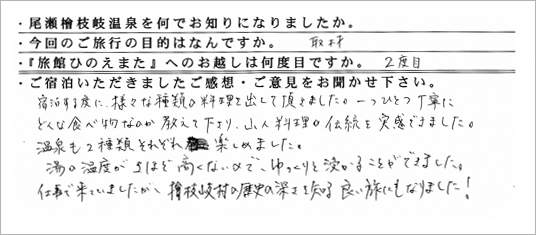 ・尾瀬檜枝岐温泉を何でお知りになりましたか。
・今回のご旅行の目的はなんですか。 取材
・『旅館ひのえまた』へのお越しは何度目ですか。 2度目
・ご宿泊いただきましたご感想・ご意見をお聞かせ下さい。
宿泊する度に、様々な種類の料理を出して頂きました。一つひとつ丁寧に
どんな食べ物なのか教えて下さり、山人料理の伝統を実感できました。
温泉も2種類それぞれ楽しめました。
湯の温度がさほど高くないので、ゆっくりと浸かることができました。
仕事で来ていましたが、檜枝岐村の歴史の深さを知る良い旅にもなりました!